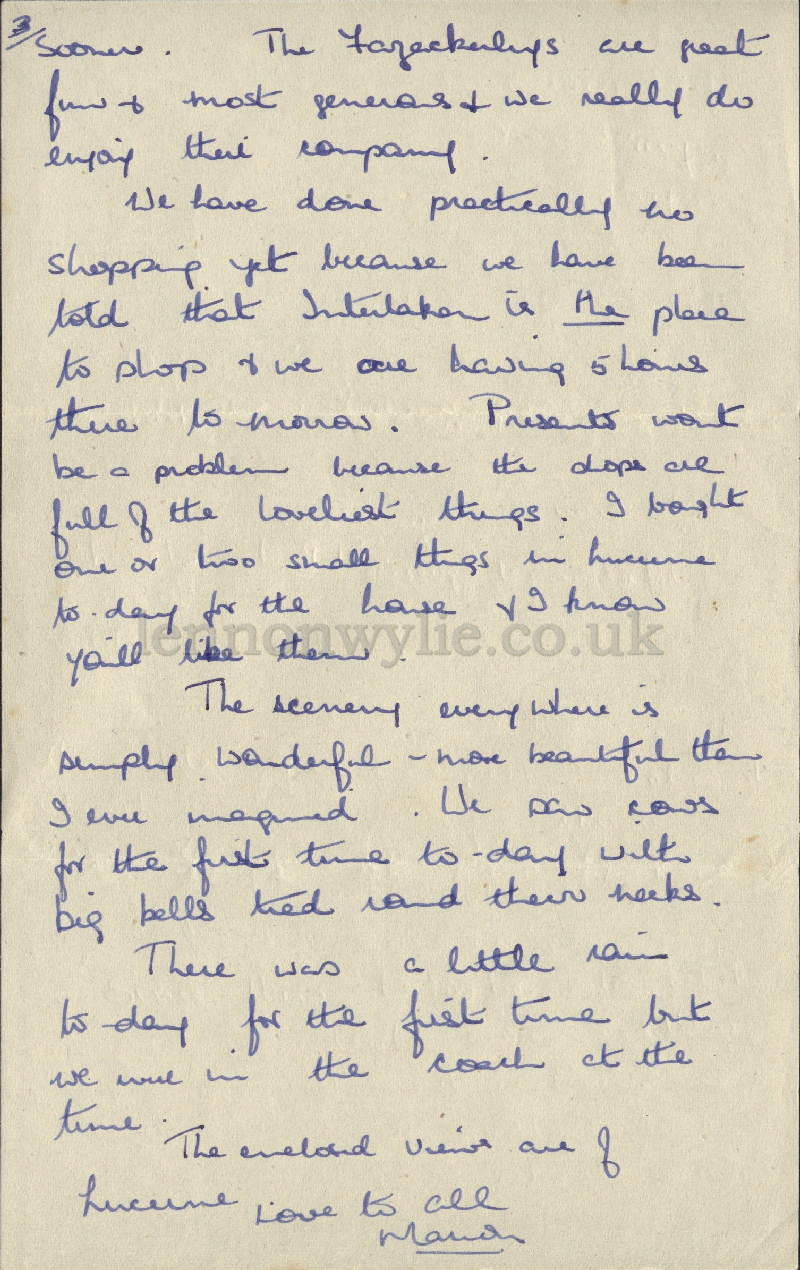 3/
sooner. The Fazackerleys are great
fun & most generous & we really do
enjoy their company.
We have done practically no
shopping yet because we have been
told that Interlaken is the place
to shop & we are having 5 hours
there to-morrow. Presents wont
be a problem because the shops are
full of the loveliest things. I bought
one or two small things in Lucerne
to-day for the house & I know
you'll like them.
lennonwylie.co.uk
The scenery everywhere is
simply wonderful - more beautiful than
I ever imagined. We saw cows
for the first time to-day with
big bells tied round their necks.
There was a little rain
to-day for the first time but
we were in the coach at the
time.
The enclosed views are of
Lucerne Love to all
Marion